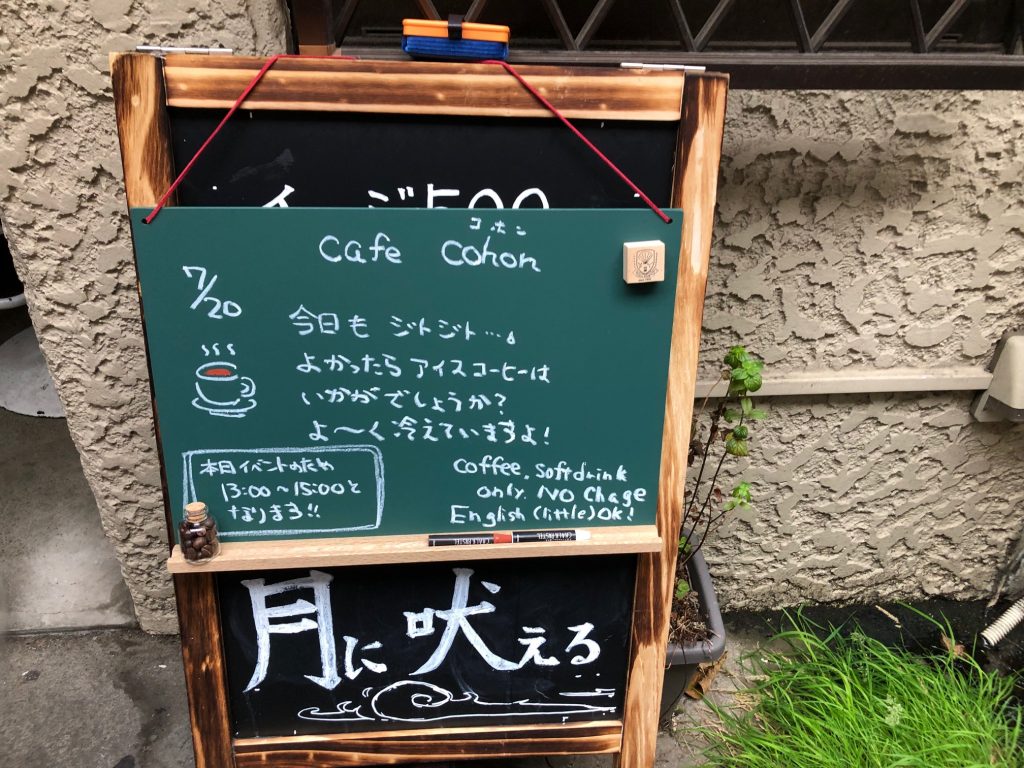 コホン
cafe cohon
7/20
今日も ジトジト…。
よかったら アイスコーヒーは
いかがでしょうか?
よ〜く冷えていますよ!
本日イベントのため
13:00〜15:00と
なります!!
coffee. softdrink
only. NO Chage
English (little) OK!
月に吠える